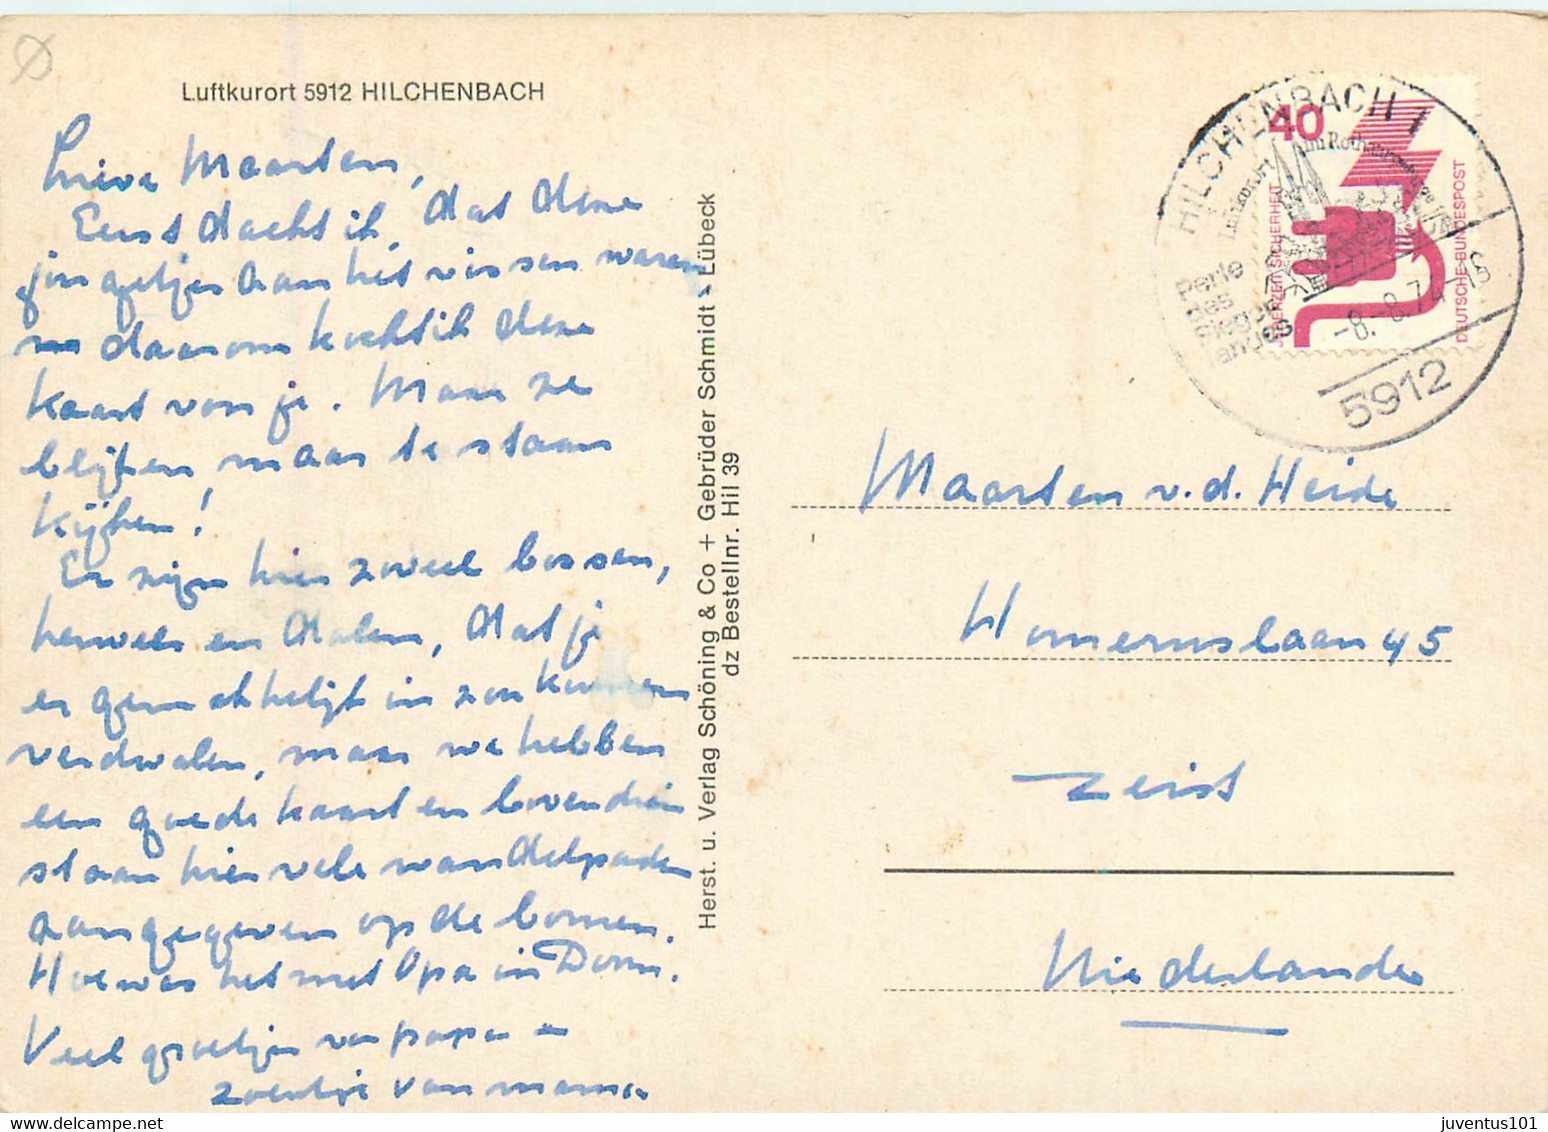 Luftkurort 5912 HILCHENBACH
Lieve Maarten,
Eerst dacht ik, dat deze
jongetjes aan het vissen waren
en daarom kocht ik deze
kaart voor je. Maar ze
blijken maar te staan
kijken!
Er zijn hier zoveel bossen,
heuvels en dalen, dat je
er gemakkelijk in zou kunnen
verdwalen, maar we hebben
een goede kaart en bovendien
staan hier vele wandelpaden
aangegeven op de bomen.
Hoe was het met Opa in Doorn.
Veel groetjes van papa en
zoentje van mama
Herst. u. Verlag Schöning & Co + Gebrüder Schmidt - Lübeck
dz Bestellnr. Hil 39
HILCHENBACH 1
Luftkurort im Rothaargebirge
Perle
des
Sieger-
landes
-8.-8.74-18
5912
40
JEDERZEIT SICHERHEIT
DEUTSCHE BUNDESPOST
Maarten v.d. Heide
Homeruslaan 45
Zeist
Niederlande
juventus101